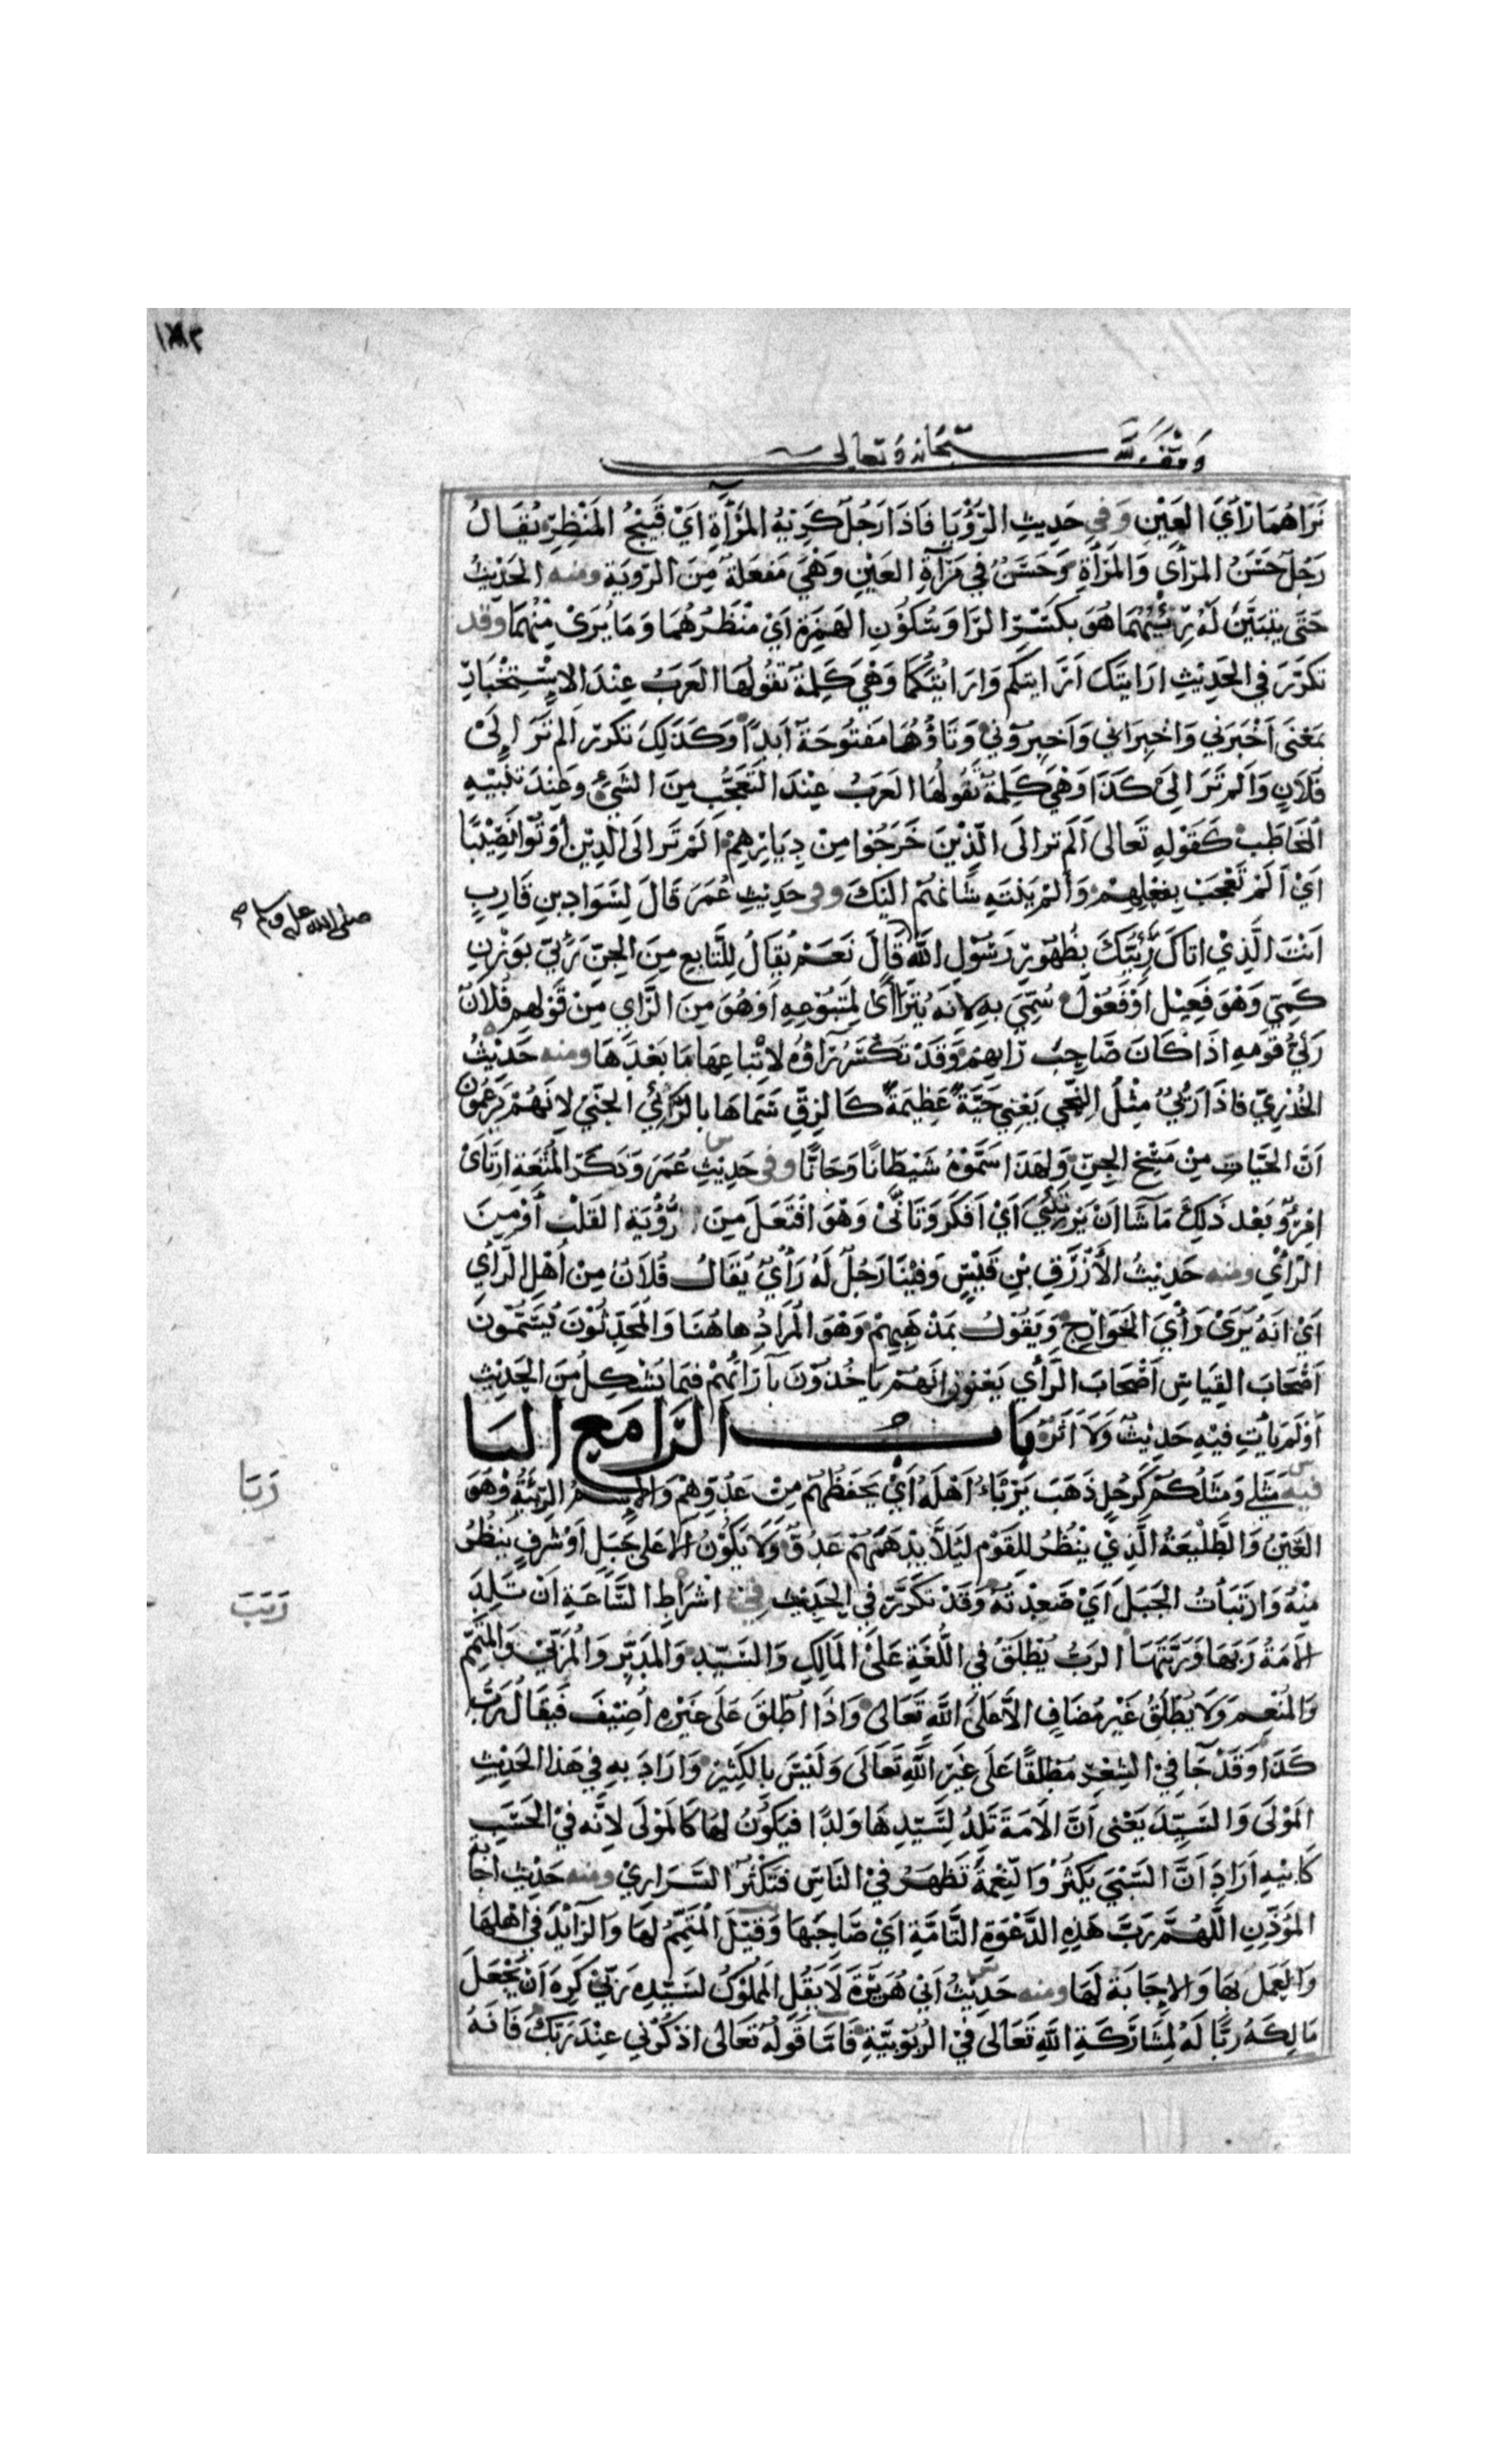 ١٨٣
وقف لله سبحانه وتعالى
نراهما رأي العين وفي حديث الرؤيا فاذا رجل كريه المرآة اي قبيح المنظر يقال
رجل حسن المرأى والمرآة وحسن في مرآة العين وهي مفعلة من الروية ومنه الحديث
حتى يتبين له رئيهما هو بكسر الرا وسكون الهمزة اي منظرهما وما يرى منهما وقد
تكرر في الحديث ارايتك ارايتكم وارايتكما وهي كلمة تقولها العرب عند الاستخبار
بمعنى اخبرني واخبراني واخبروني وتاؤها مفتوحة ابدا وكذلك تكرر الم تر الى
فلان والم تر الى كذا وهي كلمة تقولها العرب عند التعجب من الشيء وعند تنبيه
المخاطب كقوله تعالى الم تر الى الذين خرجوا من ديارهم الم تر الى الذين اوتوا نصيبا
اي الم تعجب بفعلهم والم ينته شانهم اليك وفي حديث عمر قال لسواد بن قارب
انت الذي اتاك رئيك بظهور رسول الله قال نعم يقال للتابع من الجن رئي بوزن
صلى الله عليه وسلم صح
كمي وهو فعيل او فعول سمي به لانه يتراأى لمتبوعه او هو من الراي من قولهم فلان
رئي قومه اذا كان صاحب رايهم وقد تكسر راؤه لاتباعها ما بعدها ومنه حديث
الخدري فاذا رئي مثل النحي يعني حية عظيمة كالزق سماها بالرئي الجني لانهم يزعمون
ان الحيات من مسخ الجن ولهذا سموه شيطانا وجانا وفي حديث عمر وذكر المتعة ارتاى
امرؤ بعد ذلك ما شا ان يرتئي اي افكر وتانى وهو افتعل من رؤية القلب او من
الرأي ومنه حديث الأزرق بن قيس وفينا رجل له رأي يقال فلان من اهل الرأي
اي انه يرى رأي الخوارج ويقول بمذهبهم وهو المراد هاهنا والمحدثون يسمون
اصحاب القياس اصحاب الرأي يعنون انهم ياخذون بآرائهم فيما يشكل من الحديث
او لم يأت فيه حديث ولا اثر باب الرا مع البا
ربا
فيه مثلي ومثلكم كرجل ذهب يربأ اهله اي يحفظهم من عدوهم والاسم الربيئة وهو
العين والطليعة الذي ينظر للقوم ليلا يدهمهم عدو ولا يكون الا على جبل او شرف ينظر
منه وارتبأت الجبل اي صعدته وقد تكرر في الحديث في اشراط الساعة ان تلد
ربب
الامة ربها وربتها الرب يطلق في اللغة على المالك والسيد والمدبر والمربي والمتمم
والمنعم ولا يطلق غير مضاف الا على الله تعالى واذا اطلق على غيره اضيف فيقال رب
كذا وقد جا في الشعر مطلقا على غير الله تعالى وليس بالكثير واراد به في هذا الحديث
المولى والسيد يعني ان الامة تلد لسيدها ولدا فيكون لها كالمولى لانه في الحسب
كابيه اراد ان السبي يكثر والنعمة تظهر في الناس فتكثر السراري ومنه حديث اجابة
المؤذن اللهم رب هذه الدعوة التامة اي صاحبها وقيل المتمم لها والزائد في اهلها
والعمل بها والاجابة لها ومنه حديث ابي هريرة لا يقل المملوك لسيده ربي كره ان يجعل
مالكه ربا له لمشاركة الله تعالى في الربوبية فاما قوله تعالى اذكرني عند ربك فانه